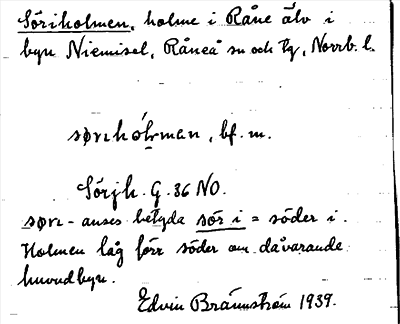 Söriholmen, holme i Råne älv i
byn Niemisel, Råneå sn och tg, Norrb. l.
sørɩhólman, bf. m.
Sörjh. G. 36 NO.
sørɩ- anses betyda sör i = söder i.
Holmen låg förr söder om dåvarande
huvudbyn.
Edvin Brännström 1939.